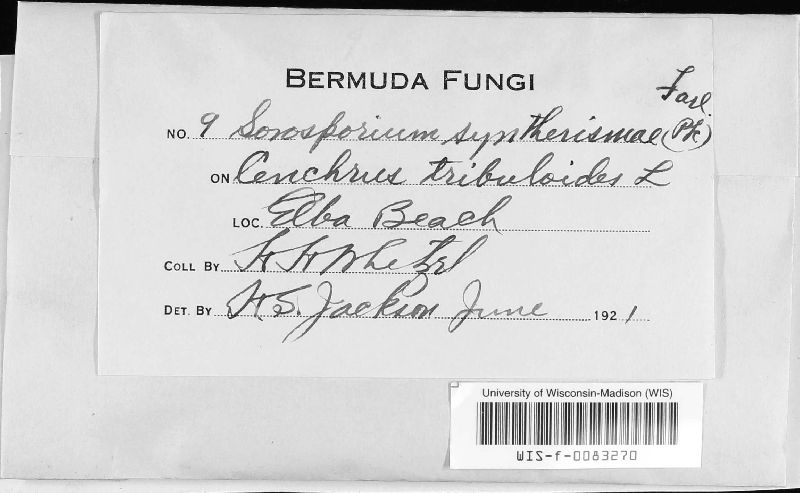 BERMUDA FUNGI
NO. 9 Sorosporium syntherismae (Pk) Farl.
ON Cenchrus tribuloides L
LOC. Elba Beach
COLL BY H H Whetzel
DET. BY H S. Jackson June 1921
University of Wisconsin-Madison (WIS)
WIS-f-0083270